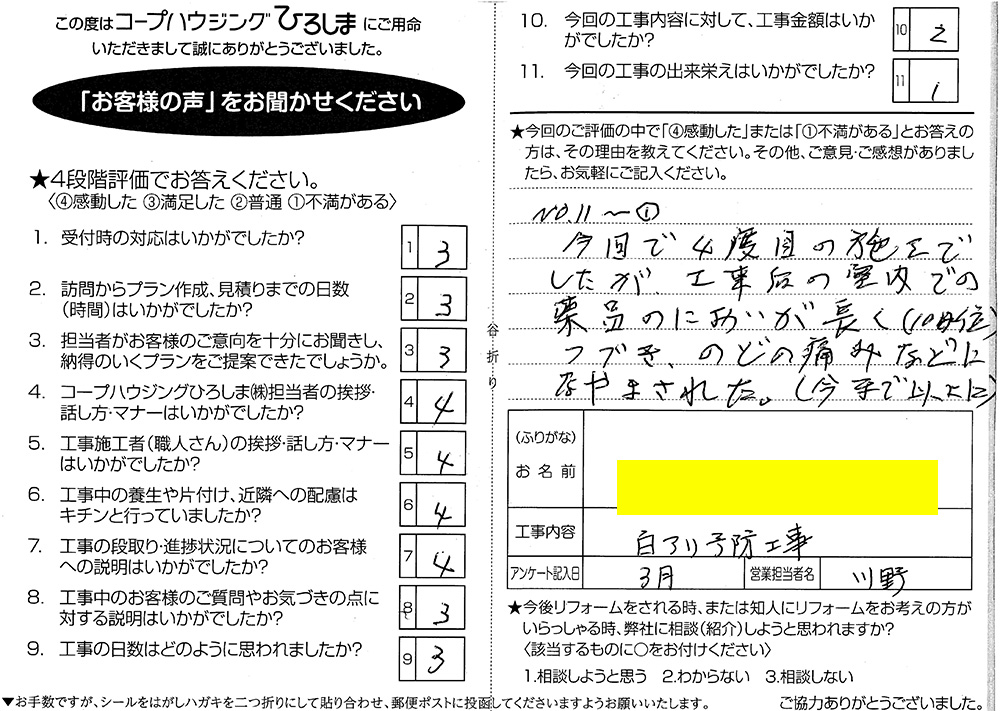 この度はコープハウジングひろしまにご用命
いただきまして誠にありがとうございました。
「お客様の声」をお聞かせください
★4段階評価でお答えください。
〈④感動した ③満足した ②普通 ①不満がある〉
1. 受付時の対応はいかがでしたか?
1 3
2. 訪問からプラン作成、見積りまでの日数
(時間)はいかがでしたか?
2 3
3. 担当者がお客様のご意向を十分にお聞きし、
納得のいくプランをご提案できたでしょうか。
3 3
4. コープハウジングひろしま㈱担当者の挨拶・
話し方・マナーはいかがでしたか?
4 4
5. 工事施工者(職人さん)の挨拶・話し方・マナー
はいかがでしたか?
5 4
6. 工事中の養生や片付け、近隣への配慮は
キチンと行っていましたか?
6 4
7. 工事の段取り・進捗状況についてのお客様
への説明はいかがでしたか?
7 4
8. 工事中のお客様のご質問やお気づきの点に
対する説明はいかがでしたか?
8 3
9. 工事の日数はどのように思われましたか?
9 3
▼お手数ですが、シールをはがしハガキを二つ折りにして貼り合わせ、郵便ポストに投函してくださいますようお願いいたします。
谷折り
10. 今回の工事内容に対して、工事金額はいか
がでしたか?
10 2
11. 今回の工事の出来栄えはいかがでしたか?
11 1
★今回のご評価の中で「④感動した」または「①不満がある」とお答えの
方は、その理由を教えてください。その他、ご意見・ご感想がありまし
たら、お気軽にご記入ください。
NO.11 〜①
今回で4度目の施工で
したが 工事后の室内での
薬品のにおいが長く(10日位)
つづき、のどの痛みなどに
なやまされた。(今まで以上に)
(ふりがな)
お名前
工事内容 白アリ予防工事
アンケート記入日 3月 営業担当者名 川野
★今後リフォームをされる時、または知人にリフォームをお考えの方が
いらっしゃる時、弊社に相談(紹介)しようと思われますか?
〈該当するものに○をお付けください〉
1.相談しようと思う 2.わからない 3.相談しない
ご協力ありがとうございました。